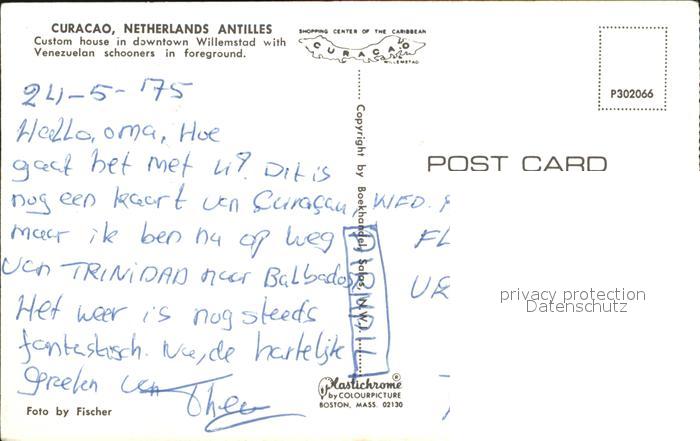 CURACAO, NETHERLANDS ANTILLES
Custom house in downtown Willemstad with
Venezuelan schooners in foreground.
SHOPPING CENTER OF THE CARIBBEAN
CURAÇAO
WILLEMSTAD
P302066
POST CARD
24-5-'75
Hallo, oma, Hoe
gaat het met U? Dit is
nog een kaart van Curaçau,
maar ik ben nu op weg
van TRINIDAD naar Balbados
Het weer is nog steeds
fantastisch. Nu, de hartelijk
groeten van Theo
AIRMAIL
WED.
FL
UR
Copyright by Boekhandel Salas, (N.W.I.)
privacy protection
Datenschutz
Plastichrome®
by COLOURPICTURE
BOSTON, MASS. 02130
Foto by Fischer